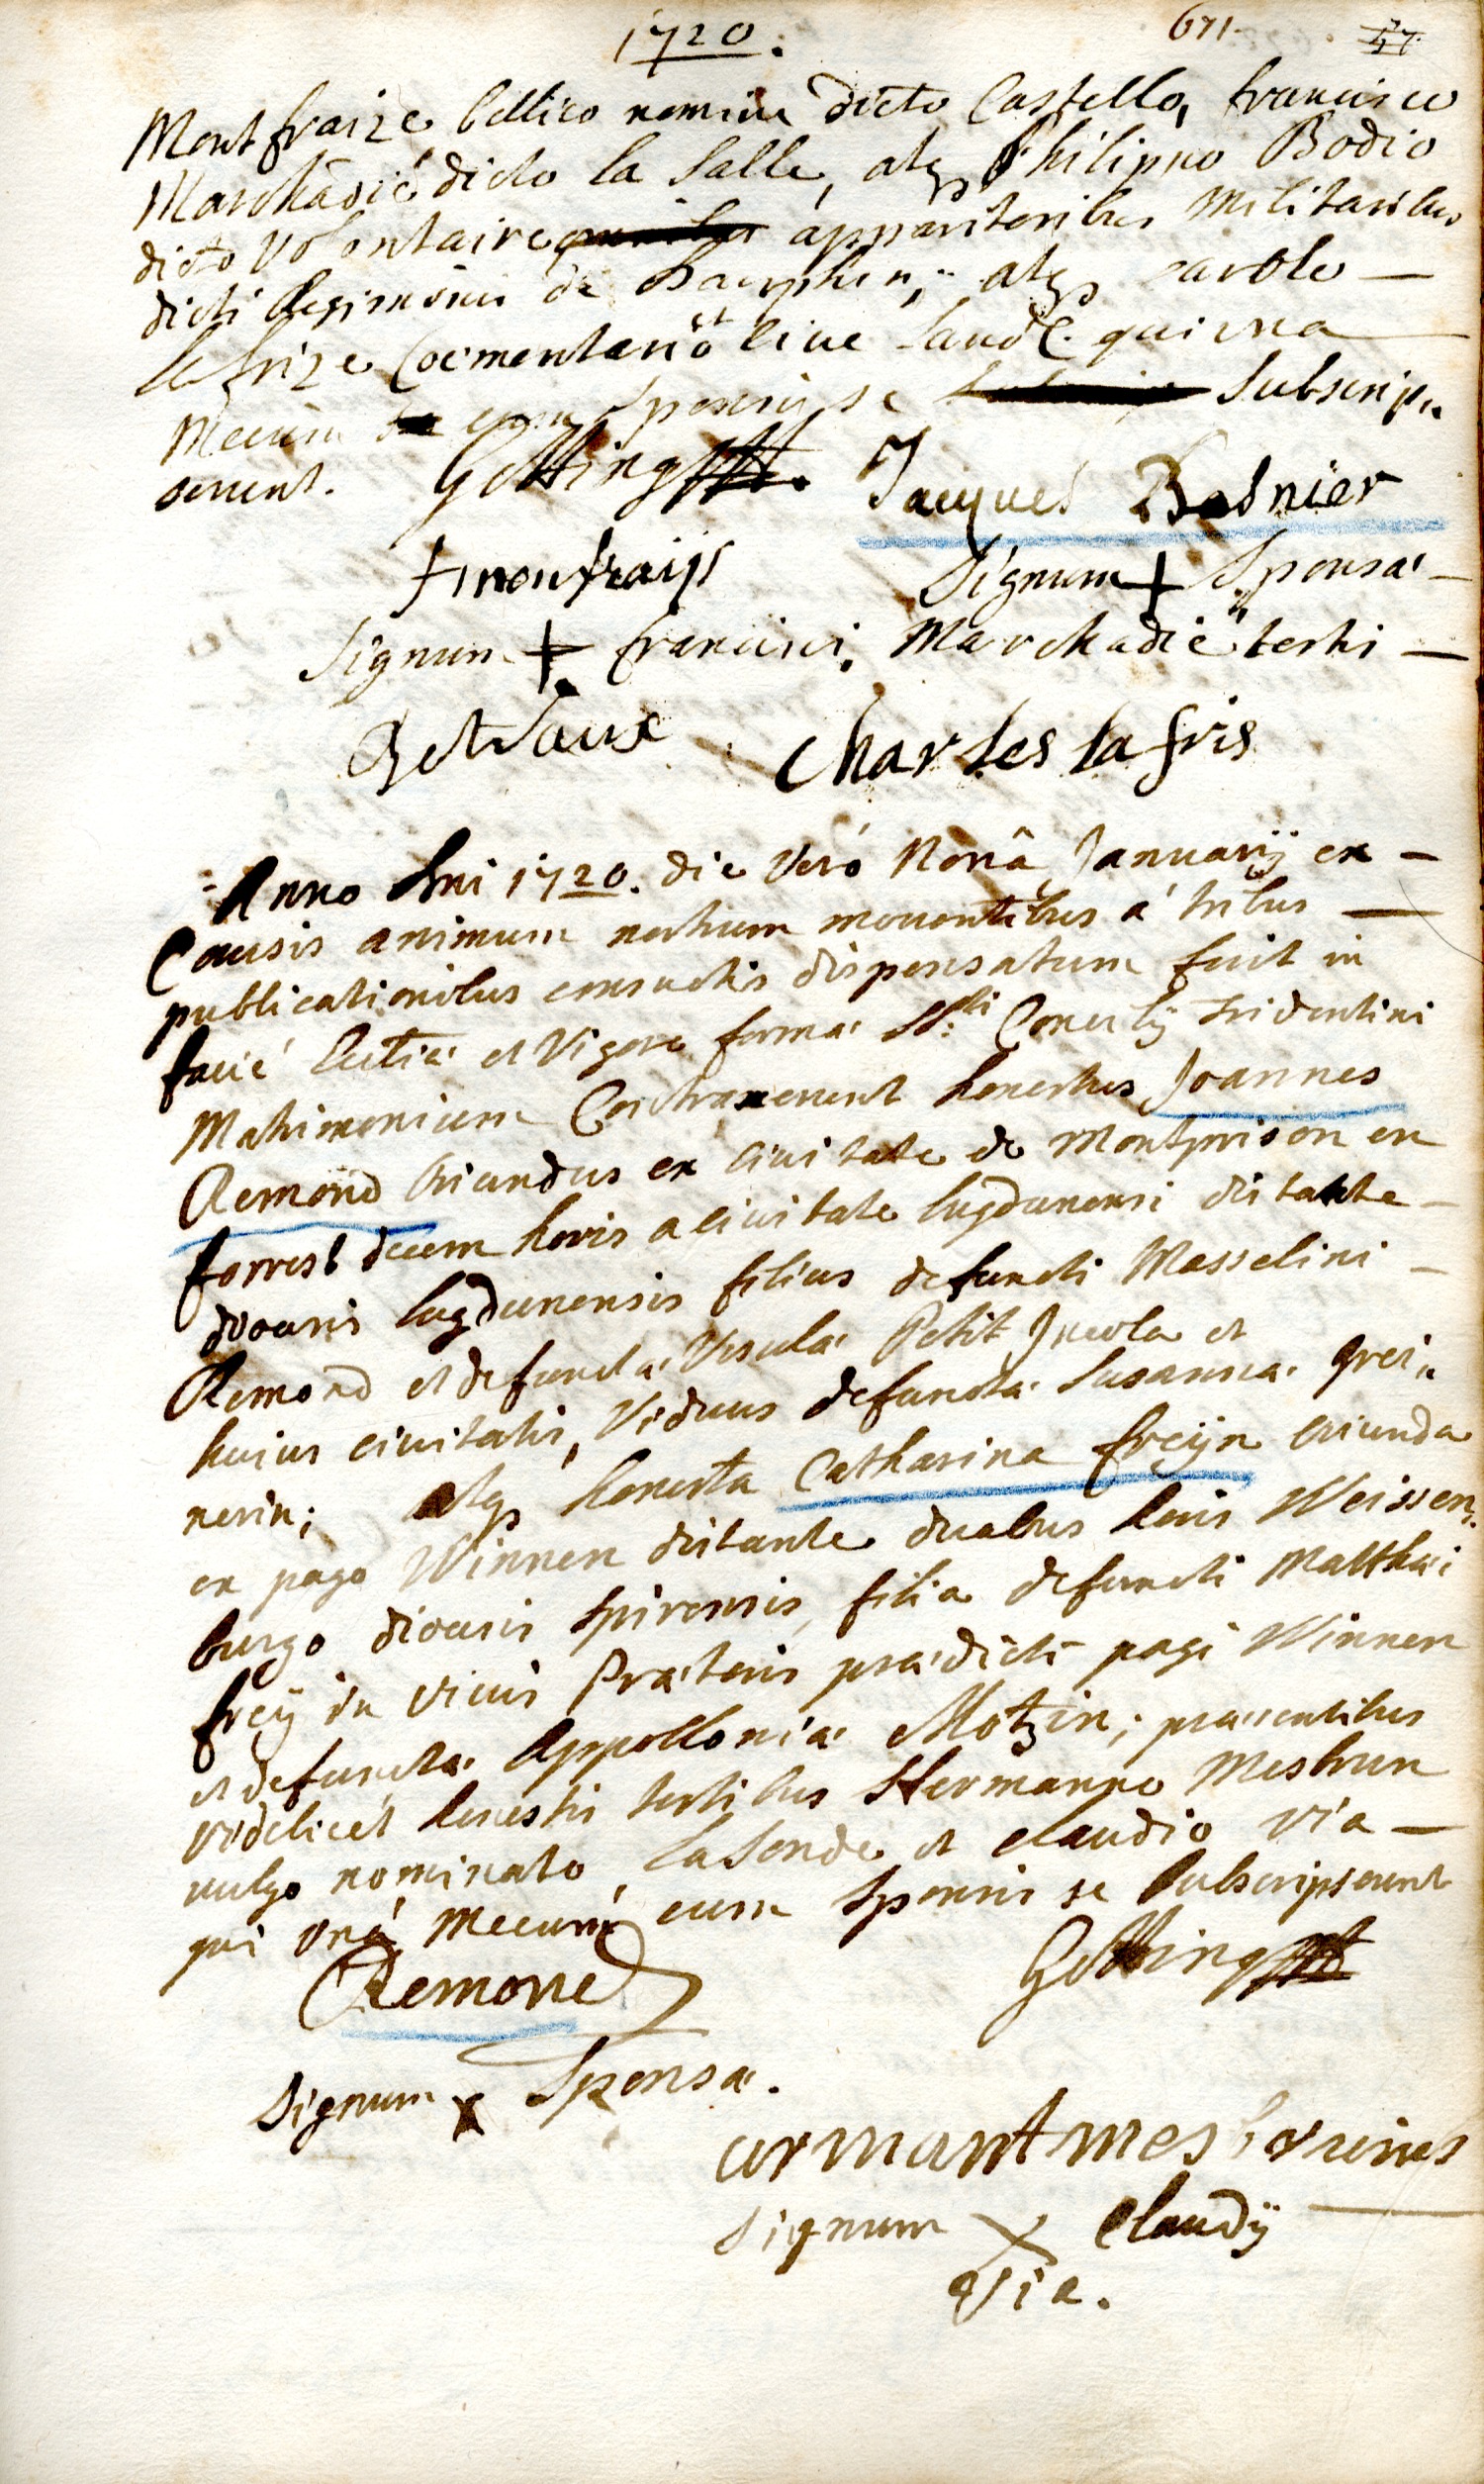 1720. 671. 57.
Montfraize bellico nomine dicto Castello, francisco
Markadié dicto la Salle, atq Philippo Bodio
dicto Volontaire apparitoribus Militaribus
dicti Regiminis de Dauphin, atq carolo —
la frize Coementario et cive Landt. qui una —
Mecum cum sponsis se Subscrip„
serunt. Gotting
Jacques Basnier
f monfraijs Signum + Sponsæ —
Signum + francisci Markadié testis —
Betvaux Charles la fris
Anno Dni 1720. die Veró Nonâ Januarij ex —
Causis animum nostrum moventibus á tribus —
publicationibus consuetis dispensatum fuit in
facié Ecctiæ et Vigore formæ Sti Concilij Tridentini
Matrimonium Contraxerunt honestus Joannes
Remond Oriundus ex civitate de Montprison en
forrest decem horis a civitate lugdunensi distante —
diocesis lugdunensis filius defuncti Masselini —
Remond et defunctæ Ursulæ Petit Incola et
huius civitatis, Viduus defunctæ Susannæ grei„
nerin; atq honesta Catharina freijn oriunda
ex pago Winnen distante duabus horis Weissen„
burgo diocesis Spirensis, filia defuncti Matthæi
freij in vivis Prætoris prædicti pagi Winnen
et defunctæ Appolloniæ Motzin; præsentibus
videlicet honestis testibus Hermanno Mesbrun
vulgo nominato LaSonde et claudio Via —
qui Vná Mecum cum Sponsis se Subscripserunt
Remond Gotting
Signum x Sponsæ.
armant mesbrunes
Signum X Claudij —
Via.